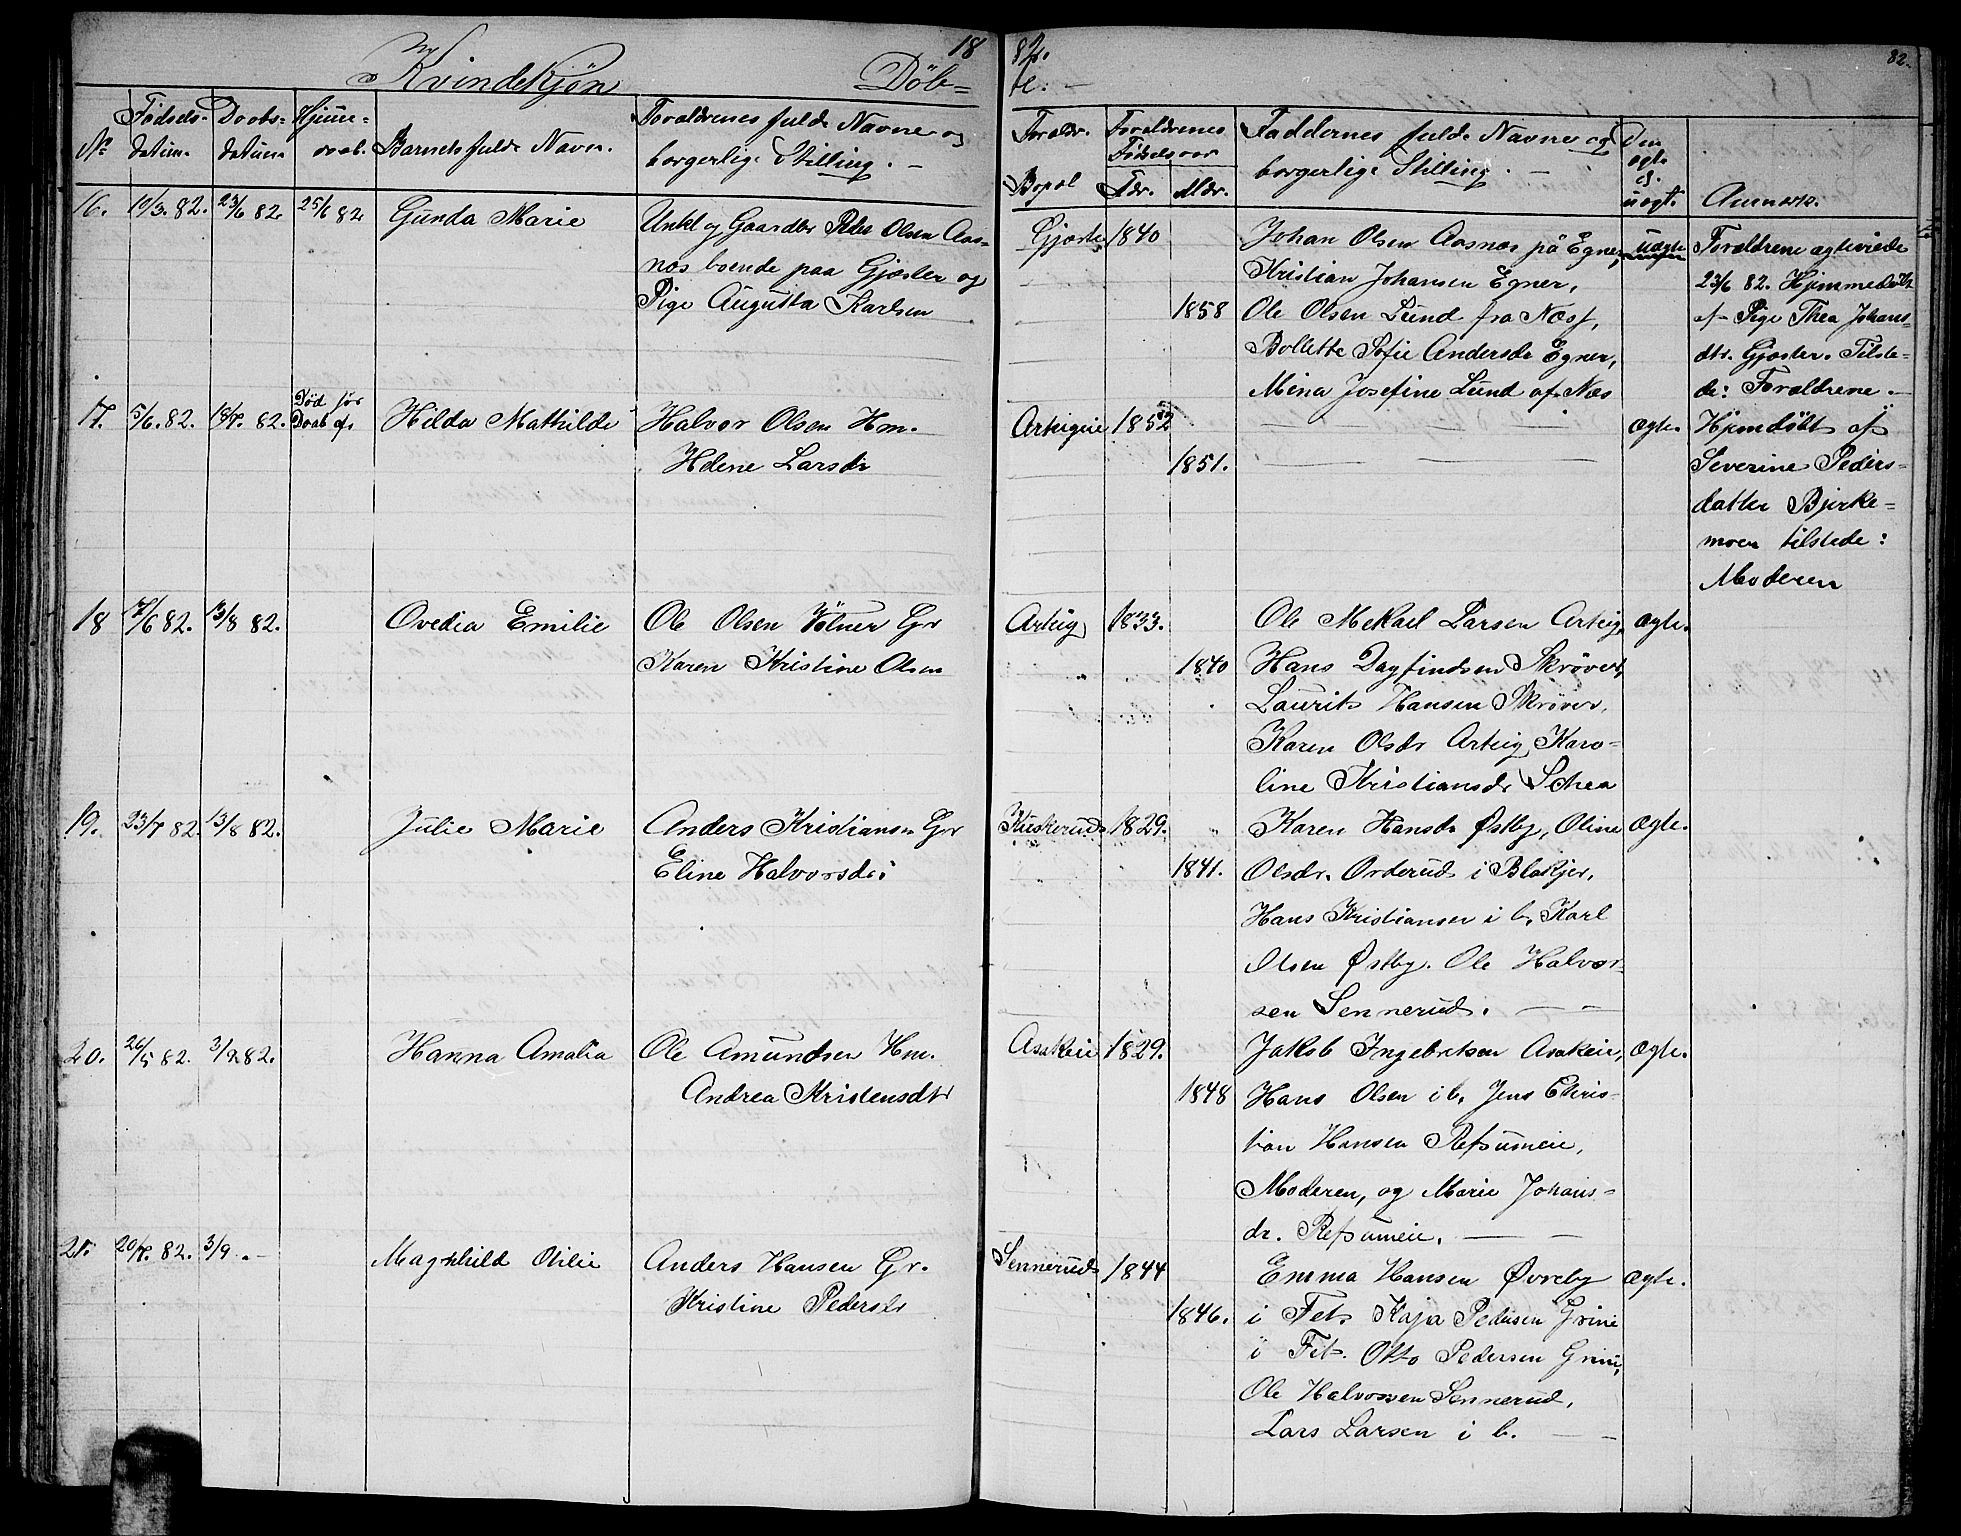 1882.
82.
Kvindekjøn Døbte. –
No
Fødsels-
datum.
Daabs-
datum
Hjem-
daab.
Barnets fulde Navn.
Forældrenes fulde Navne og
borgerlige Stilling. –
Forældr.
Bopæl
Forældrenes
Fødselsaar
Fdr. Mdr.
Faddernes fulde Navne og
borgerlige Stilling. –
Om
ægte
el.
uægt.
Anmærk.
16. 10/3. 82. 23/6 82. 25/6 82. Gunda Marie
Unkl og Gaardbr Peder Olsen Aas-
nes boende paa Gjøster og
Pige Augusta Karlsen
Gjøster 1840
1858
Johan Olsen Aasnæs på Egner,
Kristian Johansen Egner,
Ole Olsen Lund fra Næs,
Bollette Sofie Andersdr Egner,
Mina Josefine Lund af Næs
uægte
Forældrene ægteviede
23/6 82. Hjemmedøbt
af Pige Thea Johans-
dtr. Gjøster. Tilste-
de: Forældrene.
17. 5/6. 82. 18/7. 82. Død før
Daab af
Hilda Mathilde
Halvor Olsen Hm.
Helene Larsdr
Arteigeie 1852
1851.
ægte.
Hjemdøbt af
Severine Peders-
datter Bjerke-
moen tilstede:
Moderen
18 17/6 82. 13/8 82. Ovedia Emilie
Ole Olsen Vølner Gr
Karen Kristine Olsen
Arteig 1833.
1840
Ole Mekael Larsen Arteig,
Hans Dagfindsen Skrøver,
Laurits Hansen Skrøver,
Karen Olsdr Arteig, Karo-
line Kristiansdr Schea
ægte.
19. 23/7 82. 13/8 82. Julie Marie
Anders Kristiansen Gr
Eline Halvorsdr
Kuskerud 1829.
1841.
Karen Hansdr Østby, Oline
Olsdr. Orderud i Blakjer,
Hans Kristiansen i b. Karl
Olsen Østby. Ole Halvor-
sen Sennerud.
ægte.
20. 26/5 82. 3/9 82. Hanna Amalia
Ole Amundsen Hm.
Andrea Kristensdtr
Asakeie 1829.
1848
Jakob Ingebretsen Asakeie,
Hans Olsen i b. Jens Chris-
tian Hansen Refsumeie,
Moderen, og Marie Johans-
dr. Refsumeie.
ægte.
21. 20/7. 82. 3/9. – Magnhild Otilie
Anders Hansen Gr.
Kristine Pedersdr
Sennerud 1844
1846.
Emma Hansen Øvreby
i Fet. Kaja Pedersen Grini
i Fet. Otto Pedersen Grini,
Ole Halvorsen Sennerud,
Lars Larsen i b.
ægte.